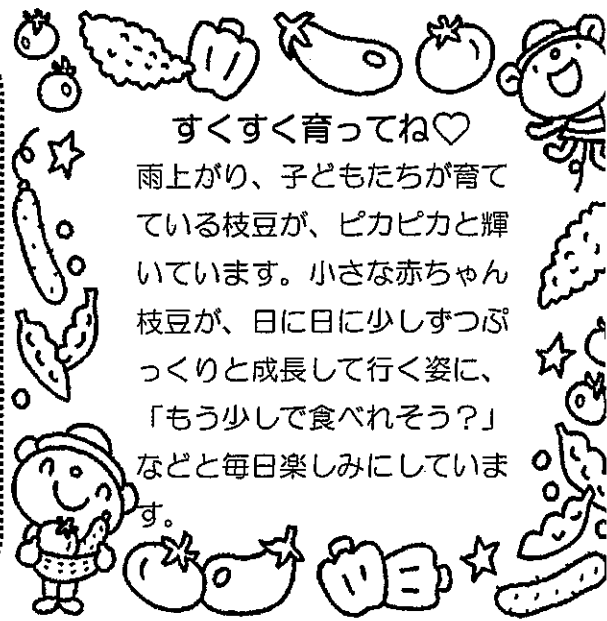 すくすく育ってね♡
雨上がり、子どもたちが育て
ている枝豆が、ピカピカと輝
いています。小さな赤ちゃん
枝豆が、日に日に少しずつぷ
っくりと成長して行く姿に、
「もう少しで食べれそう？」
などと毎日楽しみにしていま
す。